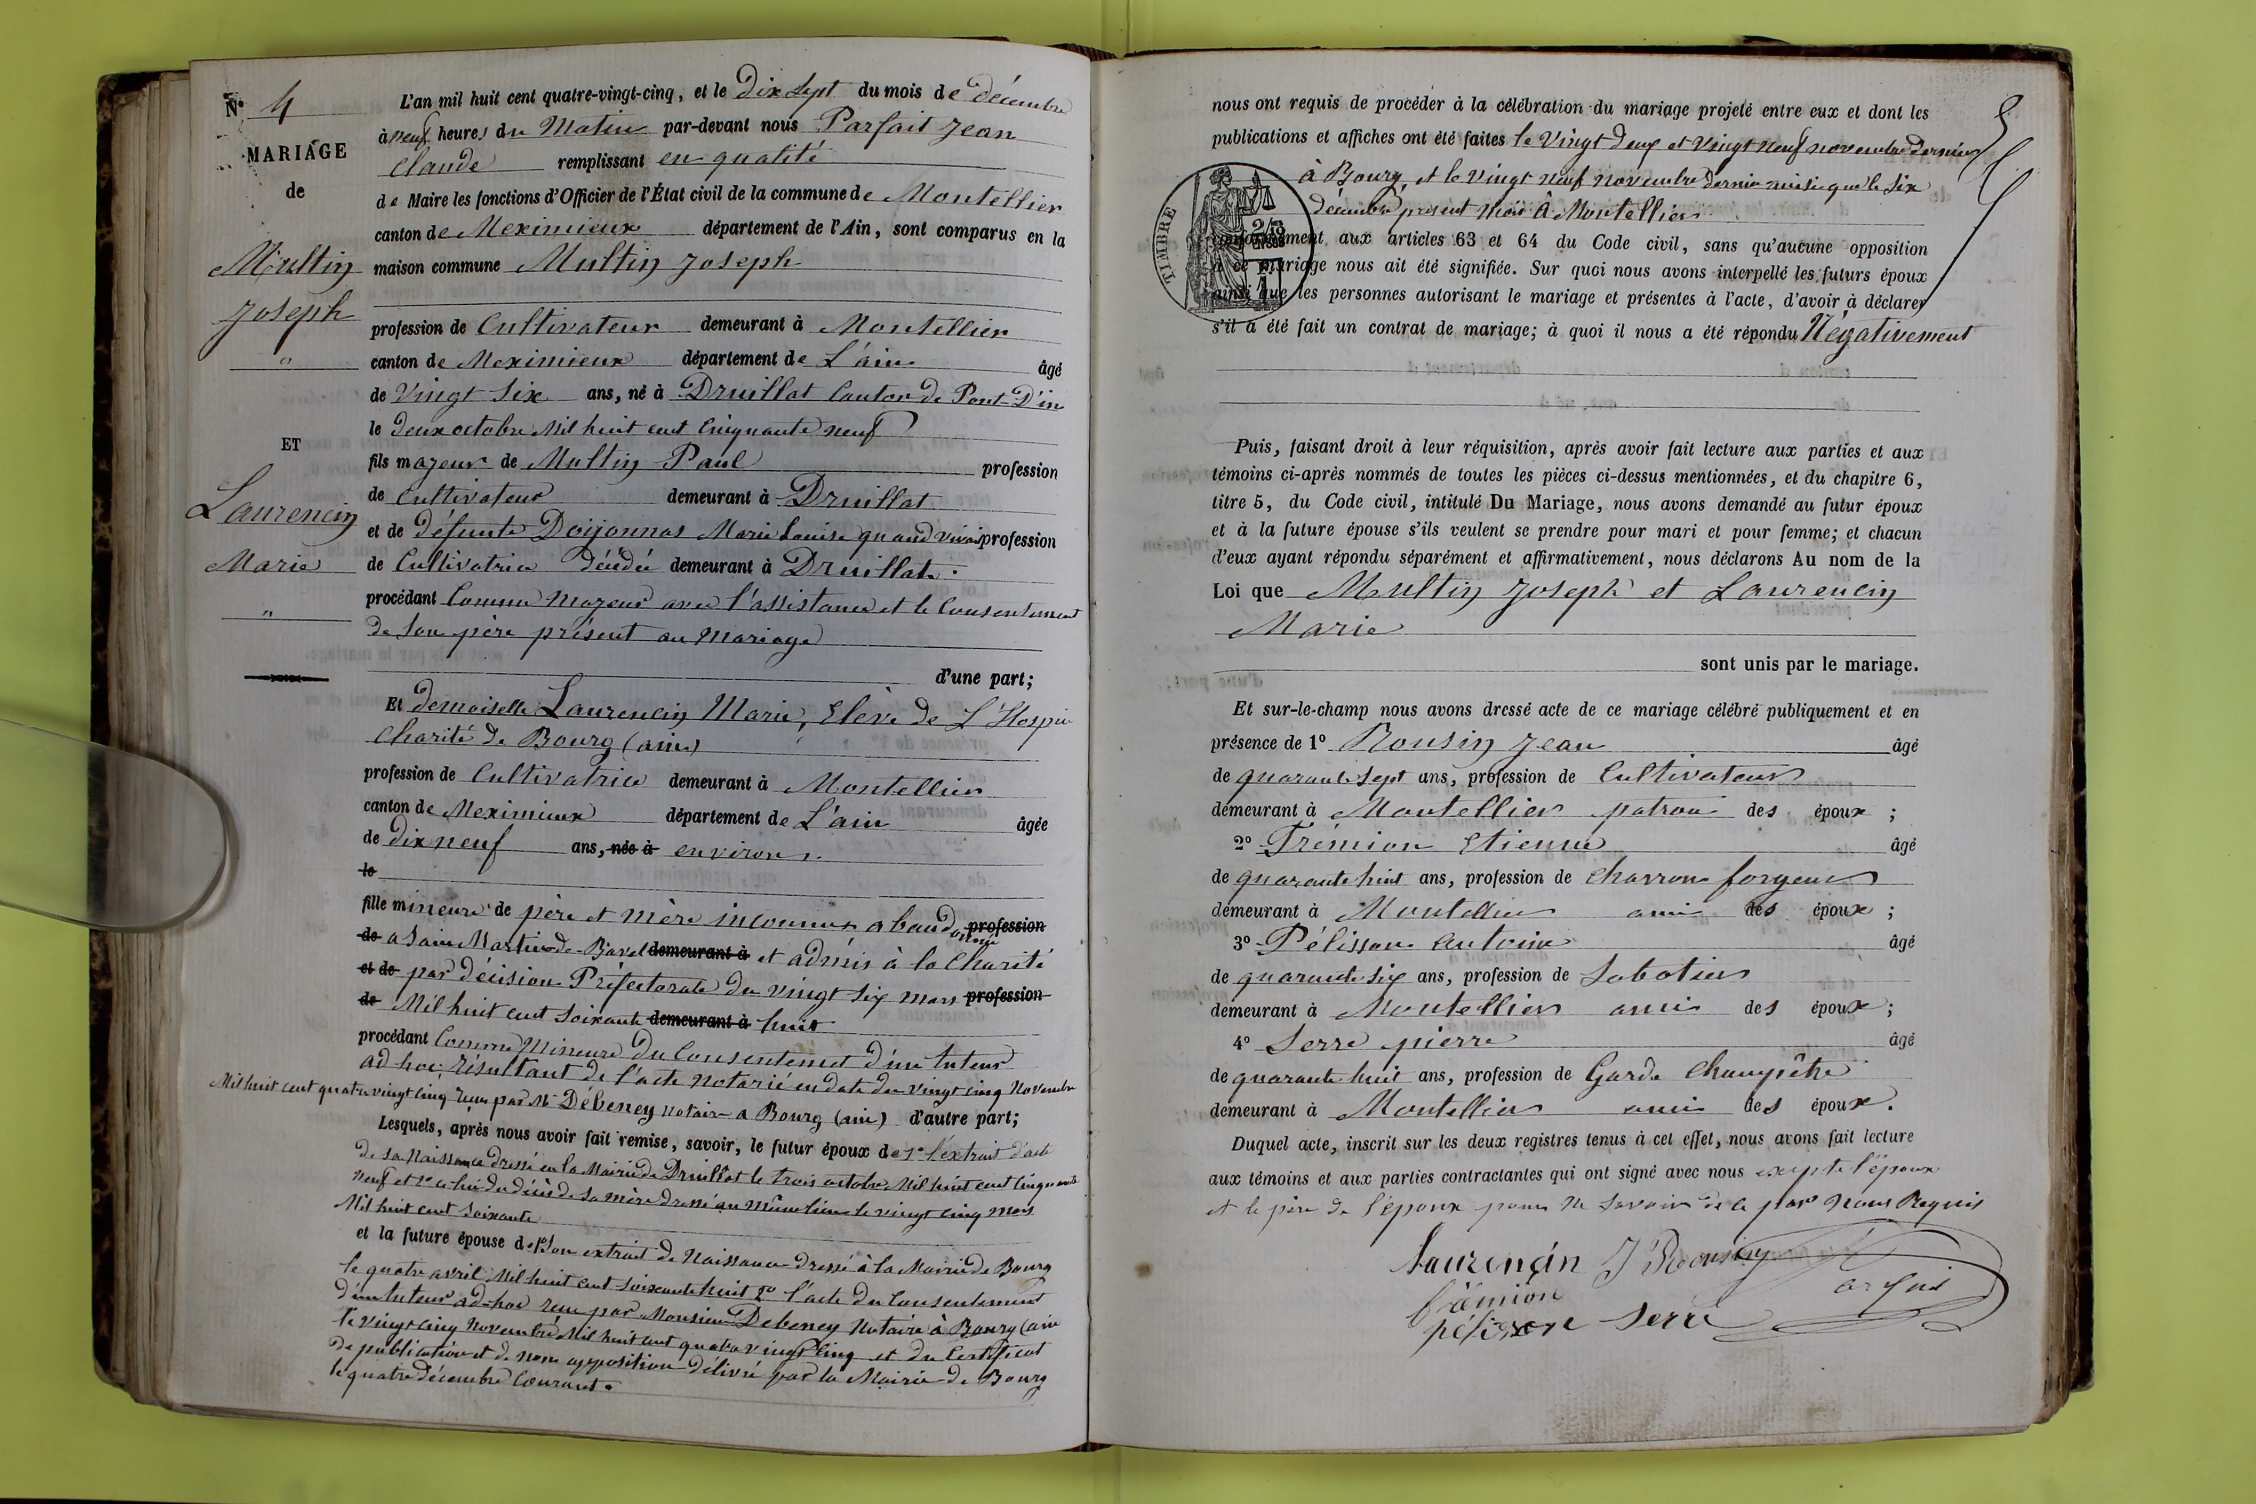 N° 4
MARIAGE
de
Multin
Joseph
"
ET
Laurencin
Marie
"
L'an mil huit cent quatre-vingt-cinq, et le Dix Sept du mois de Décembre
à neuf heures du Matin par-devant nous Parfait Jean
Claude remplissant en qualité
de Maire les fonctions d'Officier de l'État civil de la commune de Montellier
canton de Meximieux département de l'Ain, sont comparus en la
maison commune Multin Joseph
profession de Cultivateur demeurant à Montellier
canton de Meximieux département de L'ain âgé
de Vingt Six ans, né à Druillat Canton de Pont-D'in
le deux octobre Mil huit cent Cinquante neuf
fils majeur de Multin Paul profession
de Cultivateur demeurant à Druillat
et de défunte Doijonnas Marie Louise quand vivait profession
de Cultivatrice décédée demeurant à Druillat.
procédant Comme Majeur avec l'assistance et le Consentement
de Son père présent au Mariage
d'une part;
Et demoiselle Laurencin Marie, Elève de L'Hospice
Charité de Bourg (ain)
profession de Cultivatrice demeurant à Montellier
canton de Meximieux département de L'ain âgée
de dix neuf ans, née à environ
le
fille mineure de père et mère inconnus abandonnée profession
de a Saint Martin de Bavel demeurant à et admis à la Charité
et de par décision Préfectorale du vingt six mars profession
de Mil huit cent soixante demeurant à huit
procédant Comme Mineure du Consentement d'un tuteur
ad-hoc résultant de l'acte notarié en date du vingt cinq Novembre
Mil huit cent quatre vingt cinq reçu par Me Debeney notaire a Bourg (ain) d'autre part;
Lesquels, après nous avoir fait remise, savoir, le futur époux de 1° l'extrait d'acte
de sa Naissance dressé en la Mairie de Druillat le trois octobre Mil huit cent Cinquante
neuf et 2° celui du décès de sa mère dressé au même lieu le vingt cinq mars
Mil huit cent soixante
et la future épouse de 1° Son extrait de Naissance dressé à la Mairie de Bourg
le quatre avril Mil huit cent soixante huit 2° l'acte du Consentement
d'un tuteur ad-hoc reçu par Monsieur Debeney Notaire à Bourg (ain
le vingt cinq Novembre Mil huit cent quatre vingt cinq et du Certificat
de publication et de non opposition délivré par la Mairie de Bourg
le quatre décembre Courant.
nous ont requis de procéder à la célébration du mariage projeté entre eux et dont les
publications et affiches ont été faites le Vingt Deux et Vingt Neuf novembre dernier
à Bourg, et le vingt neuf novembre dernier ainsi que le Six
décembre présent mois à Montellier
TIMBRE
conformément aux articles 63 et 64 du Code civil, sans qu'aucune opposition
à ce mariage nous ait été signifiée. Sur quoi nous avons interpellé les futurs époux
ainsi que les personnes autorisant le mariage et présentes à l'acte, d'avoir à déclarer
s'il a été fait un contrat de mariage; à quoi il nous a été répondu Négativement
Puis, faisant droit à leur réquisition, après avoir fait lecture aux parties et aux
témoins ci-après nommés de toutes les pièces ci-dessus mentionnées, et du chapitre 6,
titre 5, du Code civil, intitulé Du Mariage, nous avons demandé au futur époux
et à la future épouse s'ils veulent se prendre pour mari et pour femme; et chacun
d'eux ayant répondu séparément et affirmativement, nous déclarons Au nom de la
Loi que Multin Joseph et Laurencin
Marie
sont unis par le mariage.
Et sur-le-champ nous avons dressé acte de ce mariage célébré publiquement et en
présence de 1° Rousin Jean âgé
de quarante Sept ans, profession de Cultivateur
demeurant à Montellier patron des époux;
2° Frémion Etienne âgé
de quarante huit ans, profession de Charron forgeur
demeurant à Montellier ami des époux;
3° Pélisson Antoine âgé
de quarante six ans, profession de Sabotier
demeurant à Montellier ami des époux;
4° Serre pierre âgé
de quarante huit ans, profession de Garde Champêtre
demeurant à Montellier ami des époux.
Duquel acte, inscrit sur les deux registres tenus à cet effet, nous avons fait lecture
aux témoins et aux parties contractantes qui ont signé avec nous excepté l'époux
et le père de l'époux pour ne Savoir de ce par Nous Requis
Laurencin J Rousin
frémion
pélisson Serre